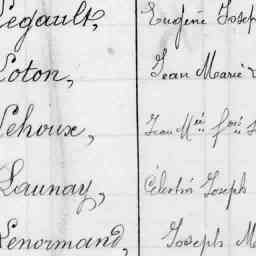 Legault, Eugène Josep
Loton, Jean Marie
Lehoux, Jean M.ie f.ois
Launay, Célestin Joseph
Lenormand, Joseph M